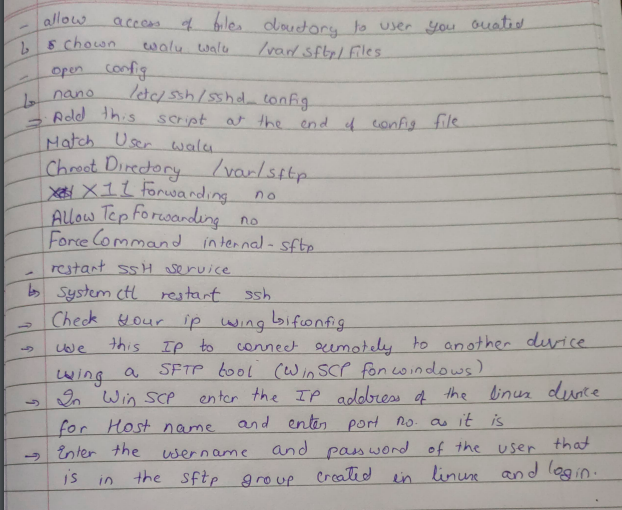 - allow access of files directory to user you created
↳ $ chown walu walu /var/sftp/files
- open config
↳ nano /etc/ssh/sshd_config
⇒ Add this script at the end of config file
Match User walu
Chroot Directory /var/sftp
X11 Forwarding no
Allow Tcp Forwarding no
Force Command internal-sftp
- restart SSH service
↳ Systemctl restart ssh
⇒ Check your ip using ifconfig
⇒ use this IP to connect remotely to another device
using a SFTP tool (WinSCP for windows)
→ In Win SCP enter the IP address of the linux device
for Host name and enter port no. as it is
⇒ Enter the username and password of the user that
is in the sftp group created in linux and login.